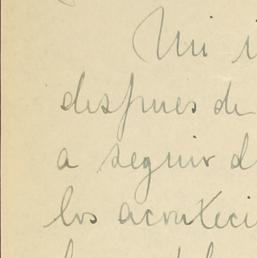 Mi i
despues de
a seguir d
los aconteci